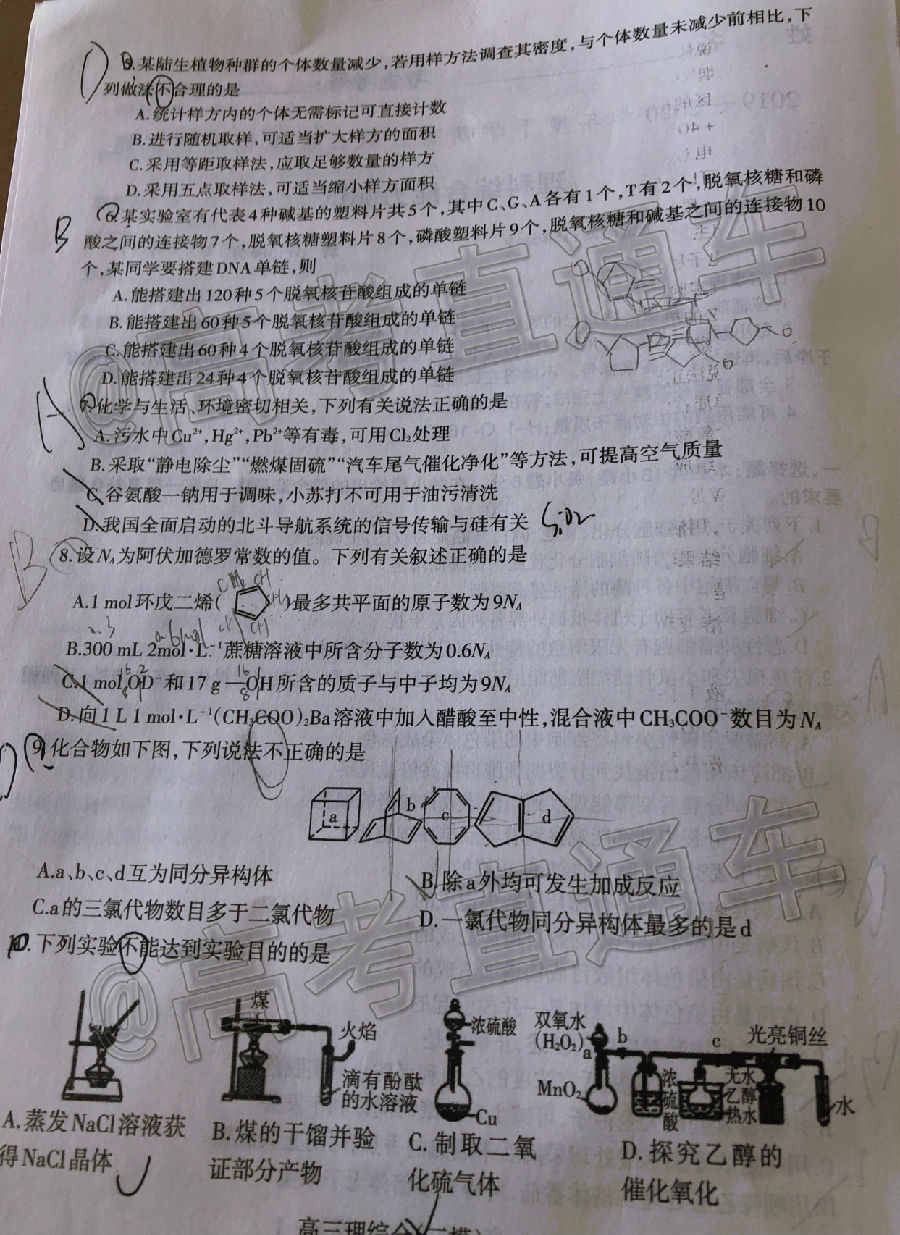 某陆生植物种群的个体数量减少,若用样方法调查其密度,与个体数量未减少前相比,下
列做法不合理的是
A.统计样方内的个体无需标记可直接计数
B.进行随机取样,可适当扩大样方的面积
C.采用等距取样法,应取足够数量的样方
D.采用五点取样法,可适当缩小样方面积
B 6.某实验室有代表4种碱基的塑料片共5个,其中C、G、A各有1个,T有2个,脱氧核糖和磷
酸之间的连接物7个,脱氧核糖塑料片8个,磷酸塑料片9个,脱氧核糖和碱基之间的连接物10
个,某同学要搭建DNA单链,则
A.能搭建出120种5个脱氧核苷酸组成的单链
B.能搭建出60种5个脱氧核苷酸组成的单链
C.能搭建出60种4个脱氧核苷酸组成的单链
D.能搭建出24种4个脱氧核苷酸组成的单链
A 7.化学与生活、环境密切相关,下列有关说法正确的是
A.污水中Cu²⁺,Hg²⁺,Pb²⁺等有毒,可用Cl₂处理
B.采取“静电除尘”“燃煤固硫”“汽车尾气催化净化”等方法,可提高空气质量
C.谷氨酸一钠用于调味,小苏打不可用于油污清洗
D.我国全面启动的北斗导航系统的信号传输与硅有关 SiO₂
B 8.设Nₐ为阿伏加德罗常数的值。下列有关叙述正确的是
A.1 mol环戊二烯( )最多共平面的原子数为9Nₐ
B.300 mL 2mol·L⁻¹蔗糖溶液中所含分子数为0.6Nₐ
C.1 mol OD⁻和17 g —OH所含的质子与中子均为9Nₐ
D.向1 L 1 mol·L⁻¹(CH₃COO)₂Ba溶液中加入醋酸至中性,混合液中CH₃COO⁻数目为Nₐ
D 9.化合物如下图,下列说法不正确的是
a b c d
A.a、b、c、d互为同分异构体 B.除a外均可发生加成反应
C.a的三氯代物数目多于二氯代物 D.一氯代物同分异构体最多的是d
10.下列实验不能达到实验目的的是
煤
火焰
滴有酚酞
的水溶液
浓硫酸
Cu
双氧水
(H₂O₂)
a
b
c
光亮铜丝
MnO₂
浓
硫
酸
无水
乙醇
热水
水
A.蒸发NaCl溶液获
得NaCl晶体
B.煤的干馏并验
证部分产物
C.制取二氧
化硫气体
D.探究乙醇的
催化氧化
高三理综合(二模)
@高考直通车
@高考直通车